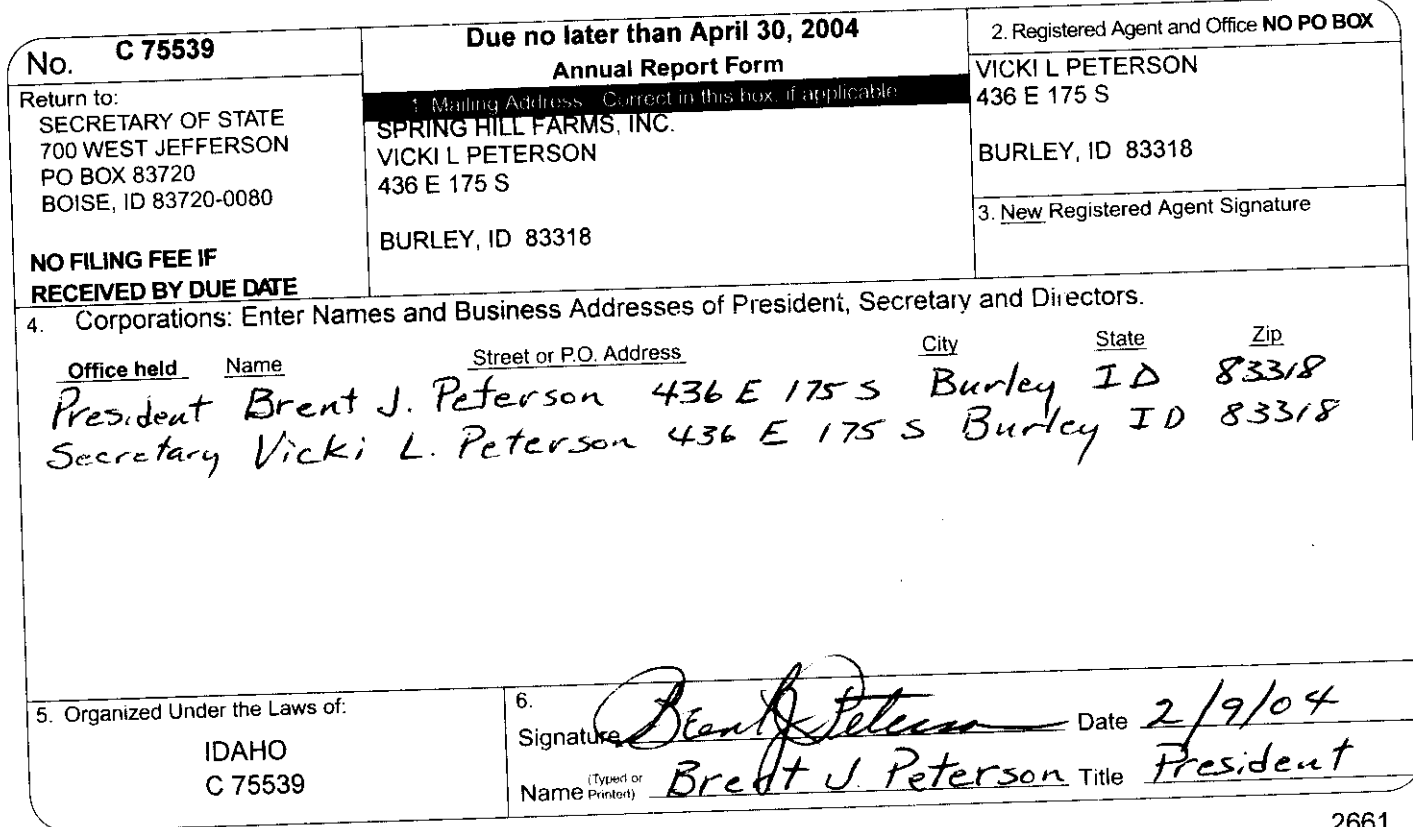 No. C 75539
Return to:
SECRETARY OF STATE
700 WEST JEFFERSON
PO BOX 83720
BOISE, ID 83720-0080
NO FILING FEE IF
RECEIVED BY DUE DATE
Due no later than April 30, 2004
Annual Report Form
1. Mailing Address Correct in this box, if applicable
SPRING HILL FARMS, INC.
VICKI L PETERSON
436 E 175 S
BURLEY, ID 83318
2. Registered Agent and Office NO PO BOX
VICKI L PETERSON
436 E 175 S
BURLEY, ID 83318
3. New Registered Agent Signature
4. Corporations: Enter Names and Business Addresses of President, Secretary and Directors.
Office held Name Street or P.O. Address City State Zip
President Brent J. Peterson 436 E 175 S Burley ID 83318
Secretary Vicki L. Peterson 436 E 175 S Burley ID 83318
5. Organized Under the Laws of:
IDAHO
C 75539
6.
Signature Brent J Peterson Date 2/9/04
Name (Typed or Printed) Brent J. Peterson Title President
2661